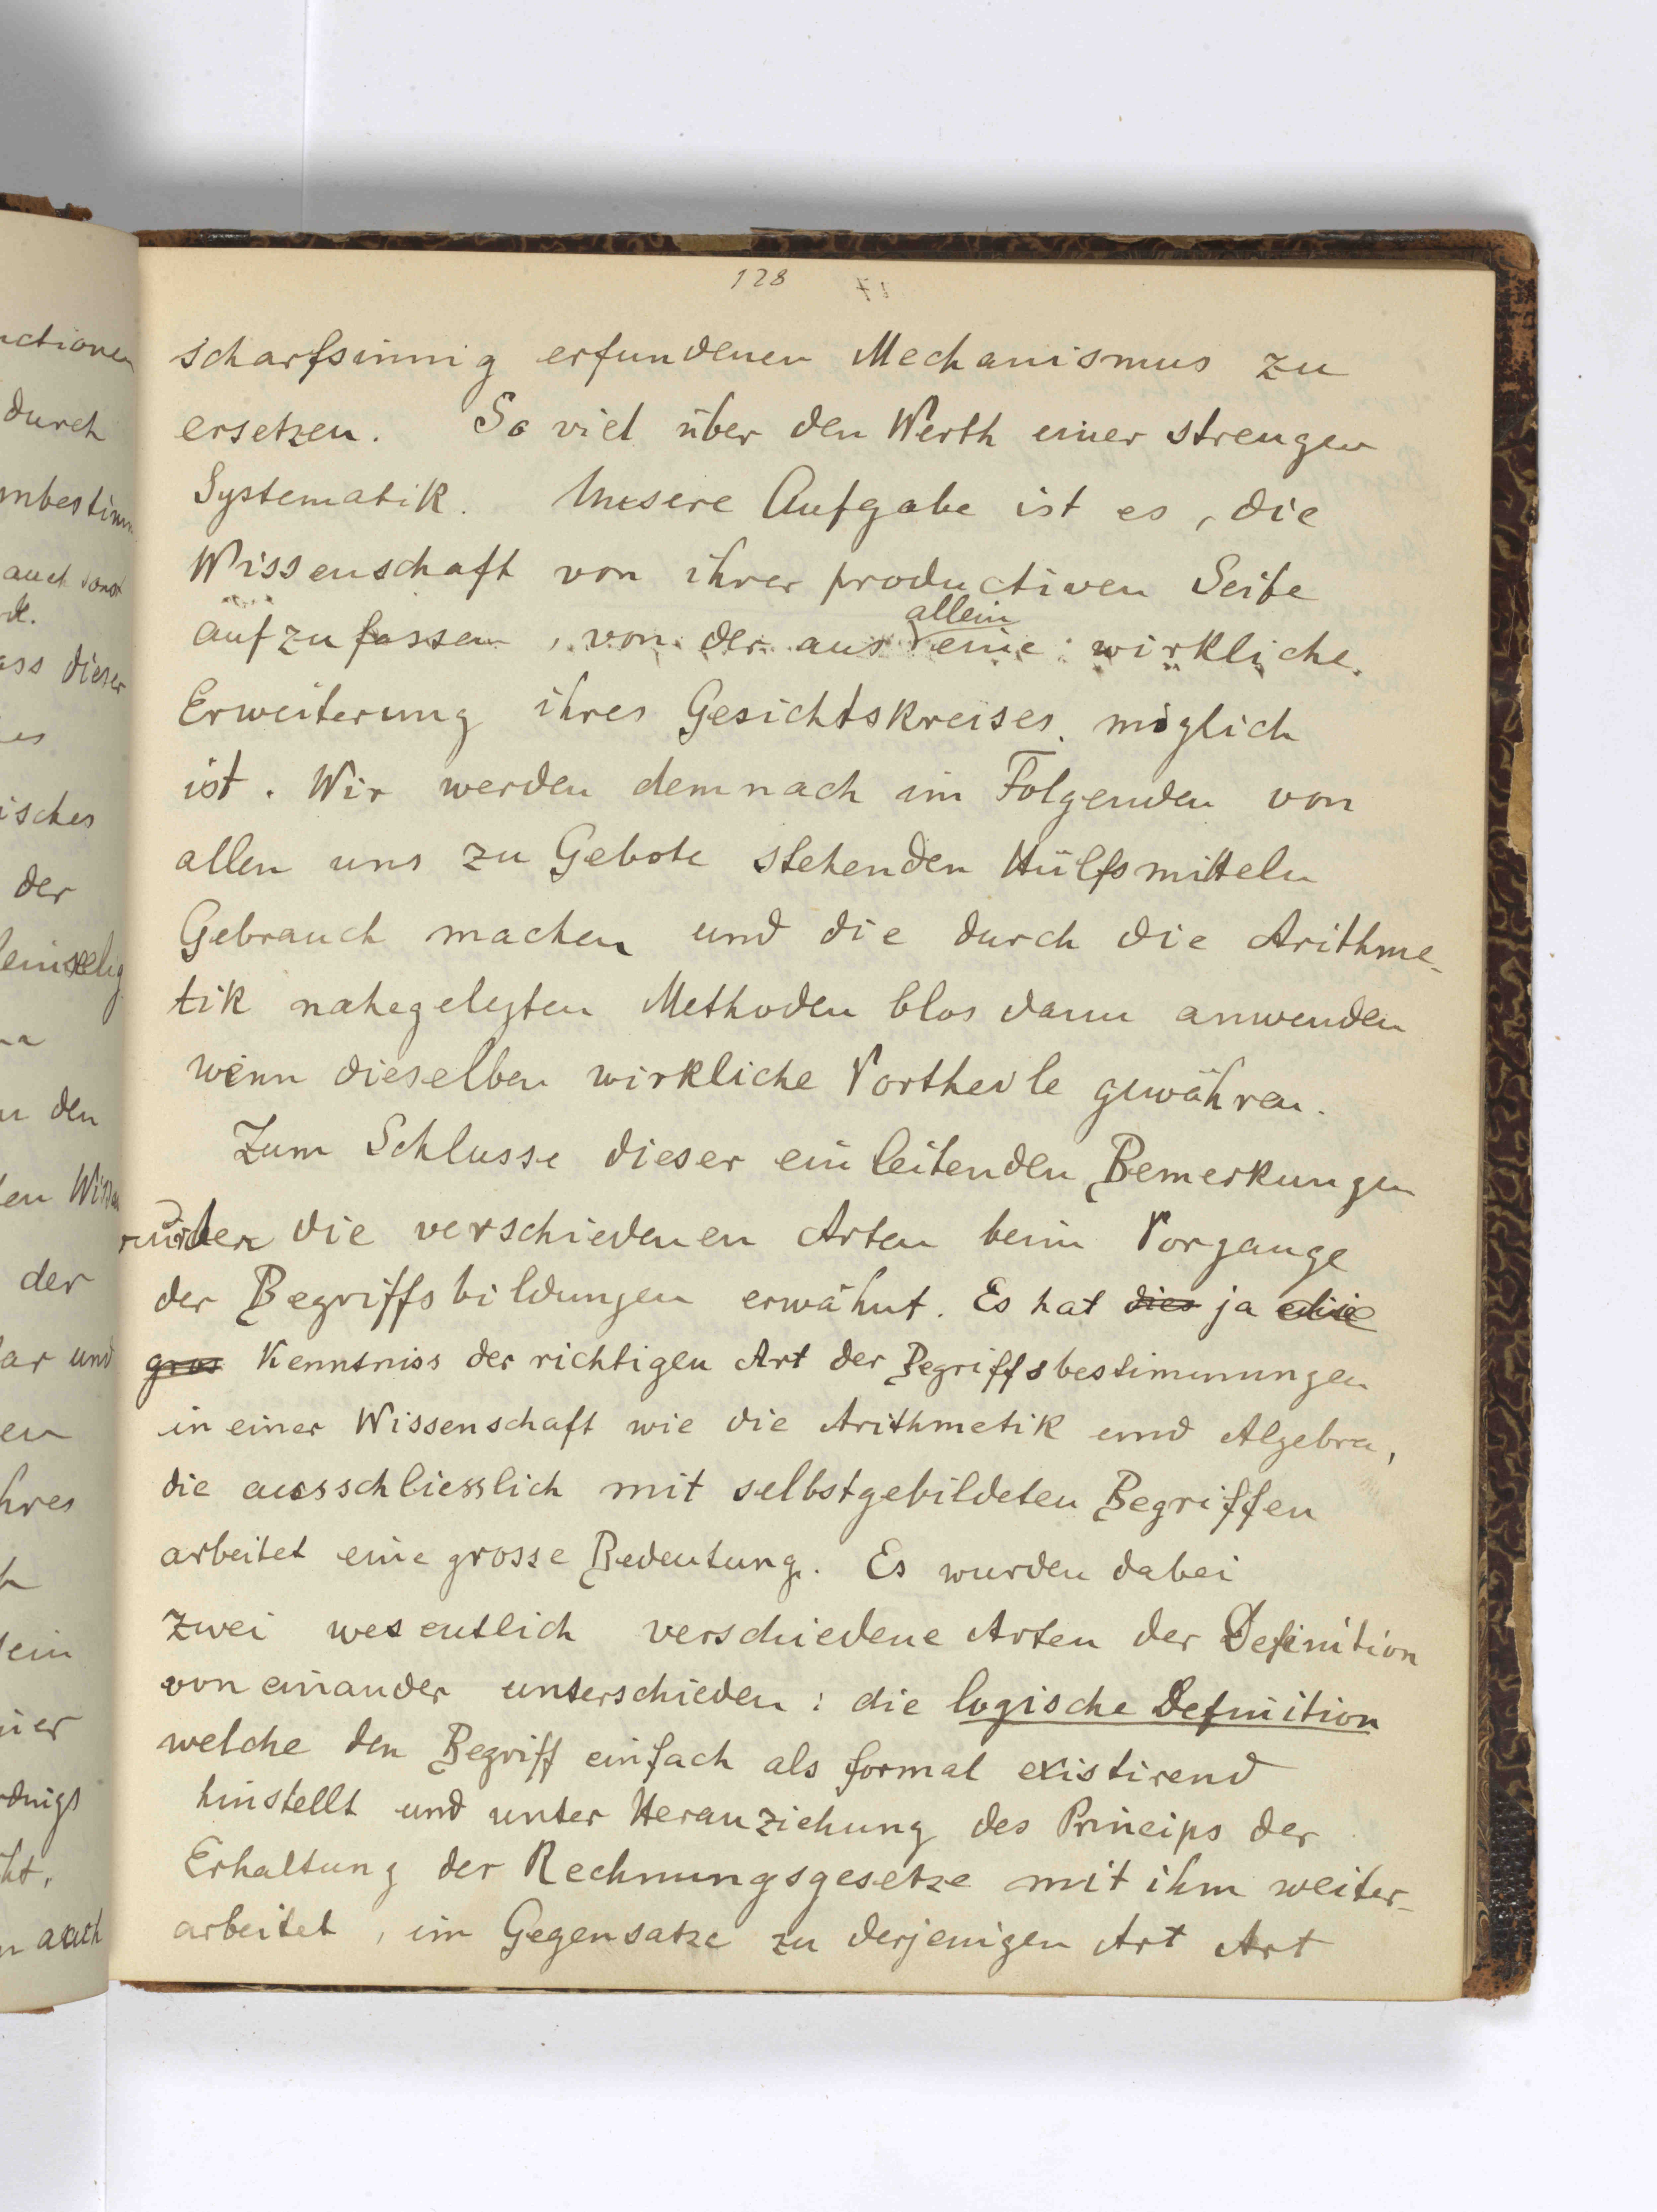 128
scharfsinnig erfundenen Mechanismus zu
ersetzen. So viel über den Werth einer strengen
Systematik. Unsere Aufgabe ist es, die
Wissenschaft von ihrer productiven Seite
allein
aufzufassen, von der aus eine wirkliche
Erweiterung ihres Gesichtskreises möglich
ist. Wir werden demnach im Folgenden von
allen uns zu Gebote stehenden Hülfsmitteln
Gebrauch machen und die durch die Arithme-
tik nahegelegten Methoden blos dann anwenden
wenn dieselben wirkliche Vortheile gewähren.
Zum Schlusse dieser einleitenden Bemerkungen
wurden die verschiedenen Arten beim Vorgange
der Begriffsbildungen erwähnt. Es hat dies ja die
gros Kenntniss der richtigen Art der Begriffsbestimmungen
in einer Wissenschaft wie die Arithmetik und Algebra,
die ausschliesslich mit selbstgebildeten Begriffen
arbeitet eine grosse Bedeutung. Es wurden dabei
zwei wesentlich verschiedene Arten der Definition
von einander unterschieden: die logische Definition
welche den Begriff einfach als formal existirend
hinstellt und unter Heranziehung des Princips der
Erhaltung der Rechnungsgesetze mit ihm weiter-
arbeitet, im Gegensatze zu derjenigen Art Art
durch
der
den
der
auch